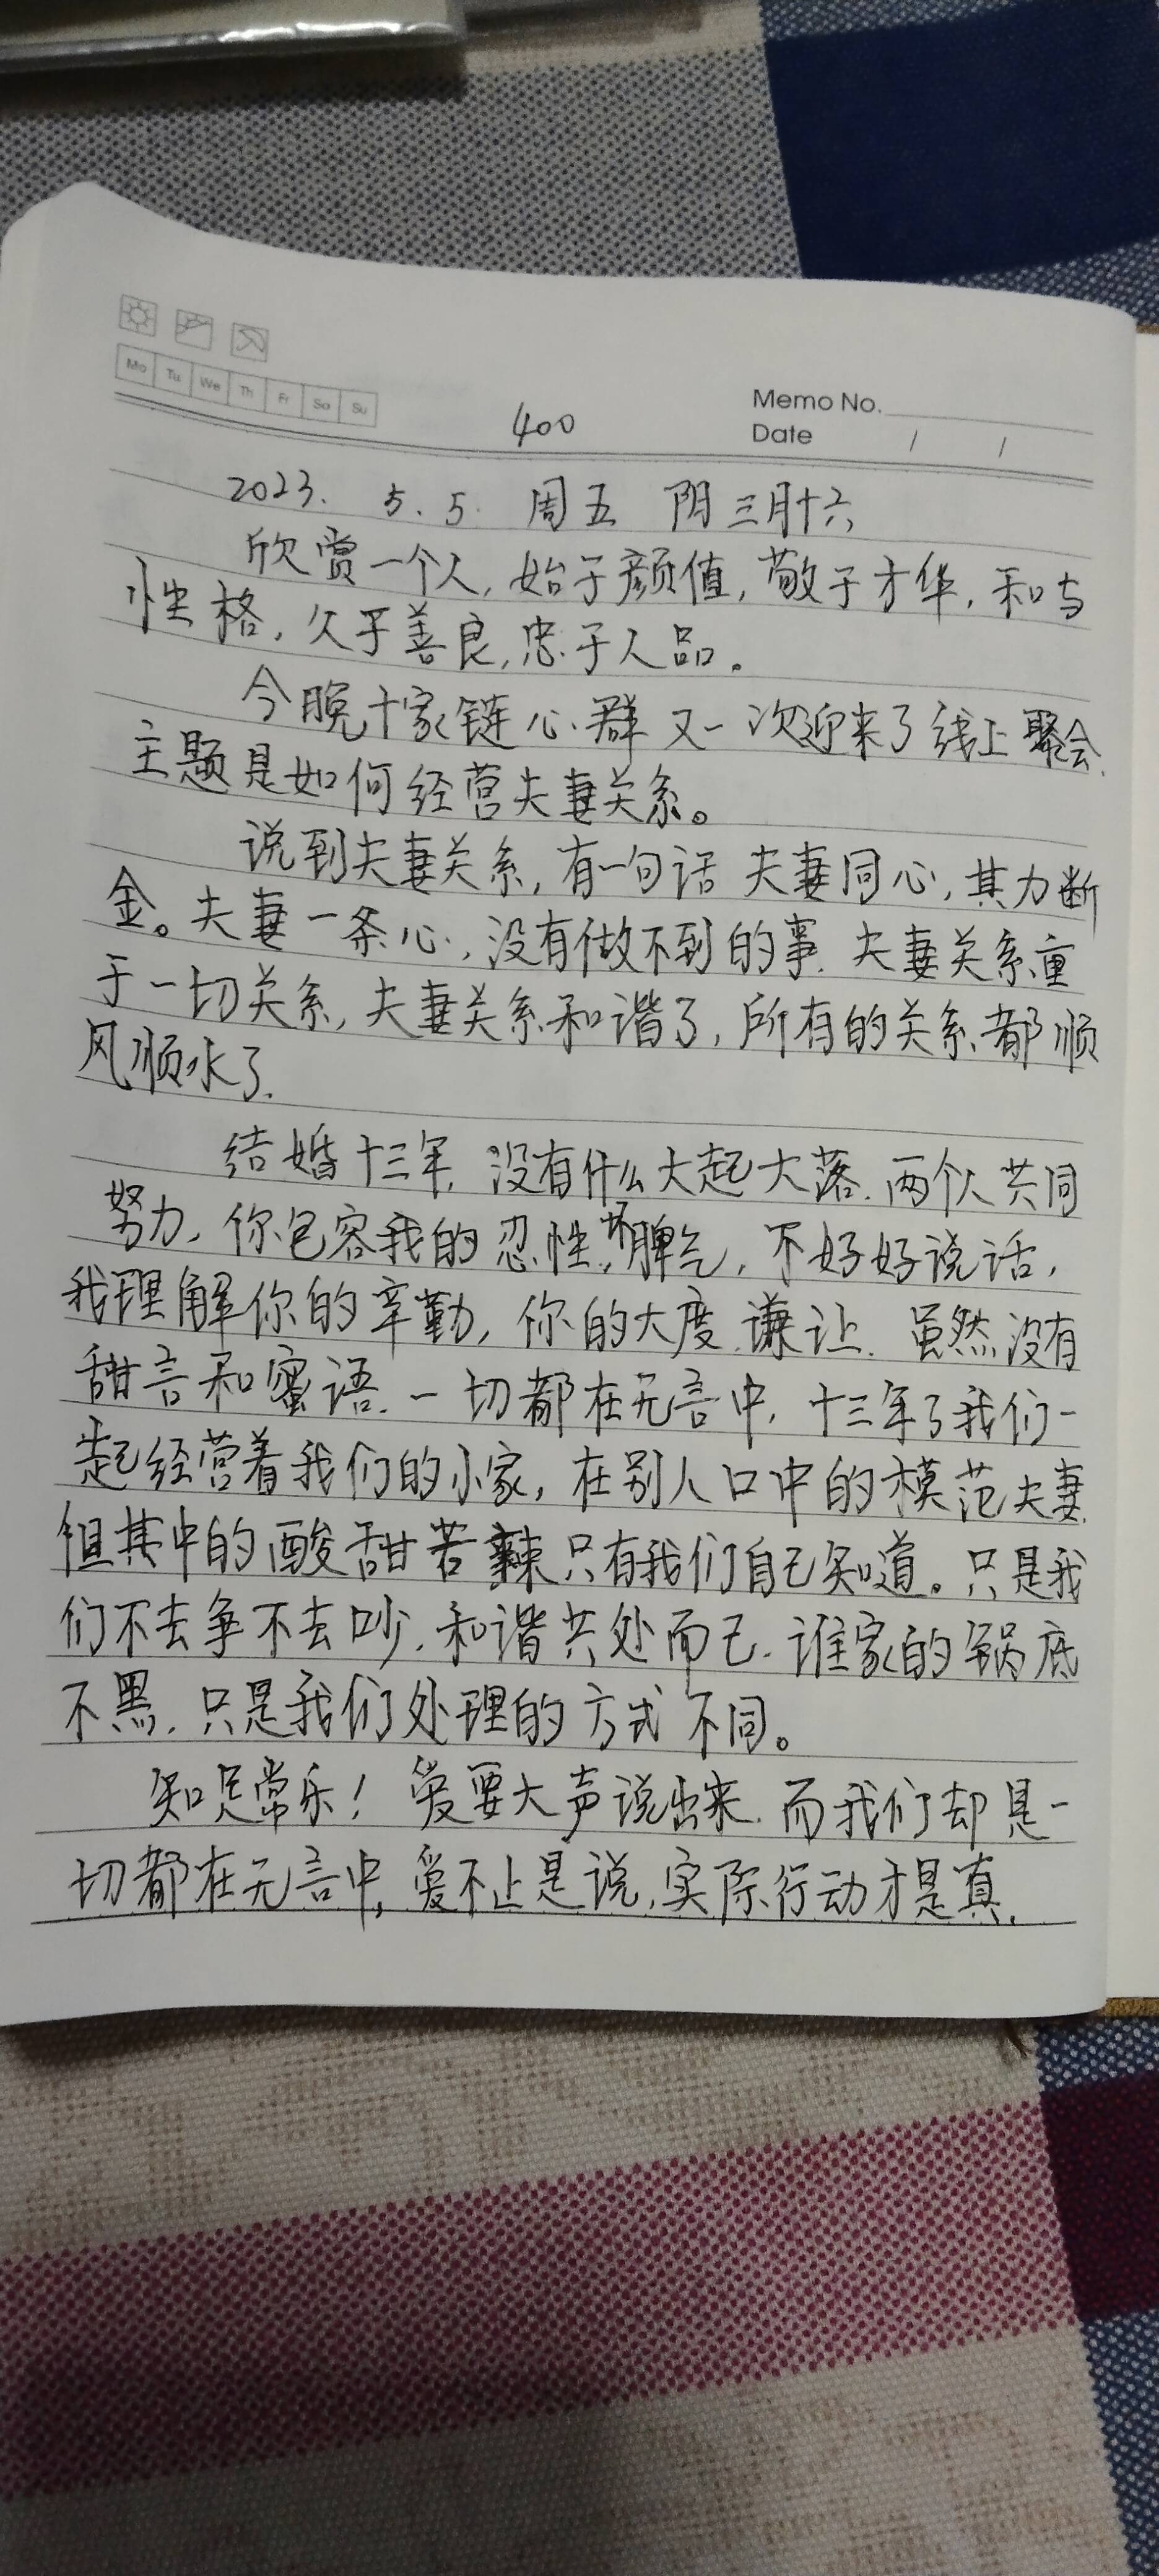 Mo Tu We Th Fr Sa Su
Memo No.
400
Date / /
2023. 5.5. 周五 阴三月十六
欣赏一个人,始于颜值,敬于才华,和与
性格,久于善良,忠于人品。
今晚十家链心群又一次迎来了线上聚会.
主题是如何经营夫妻关系。
说到夫妻关系,有一句话 夫妻同心,其力断
金。夫妻一条心,没有做不到的事.夫妻关系重
于一切关系,夫妻关系和谐了,所有的关系都顺
风顺水了.
结婚十三年,没有什么大起大落.两个人共同
努力,你包容我的忍性,坏脾气,不好好说话,
我理解你的辛勤,你的大度.谦让.虽然没有
甜言和蜜语.一切都在无言中,十三年了我们一
起经营着我们的小家,在别人口中的模范夫妻.
但其中的酸甜苦辣只有我们自己知道。只是我
们不去争不去吵.和谐共处而已.谁家的锅底
不黑.只是我们处理的方式不同。
知足常乐!爱要大声说出来.而我们却是一
切都在无言中,爱不止是说,实际行动才是真.